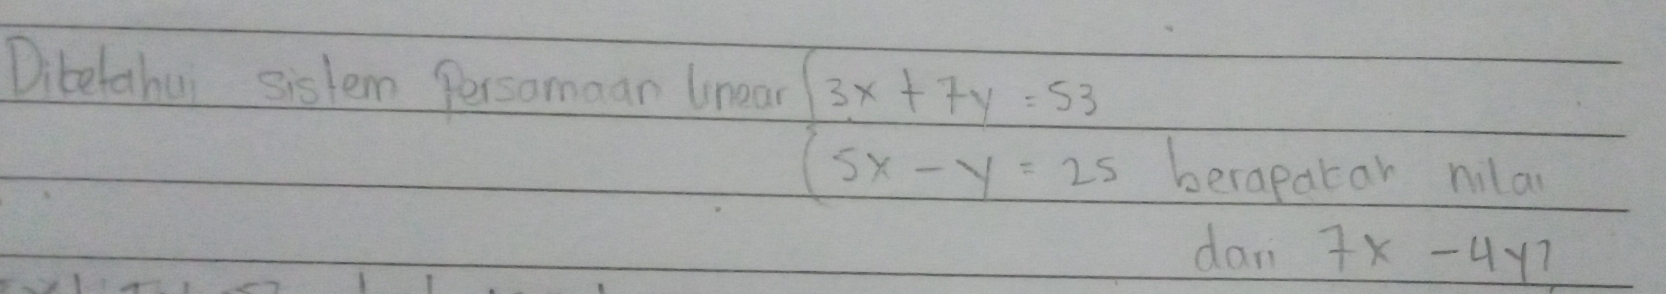 Diketahui sistem Persamaan linear { 3x + 7y = 53
5x - y = 25 berapakah nilai
dari 7x - 4y?